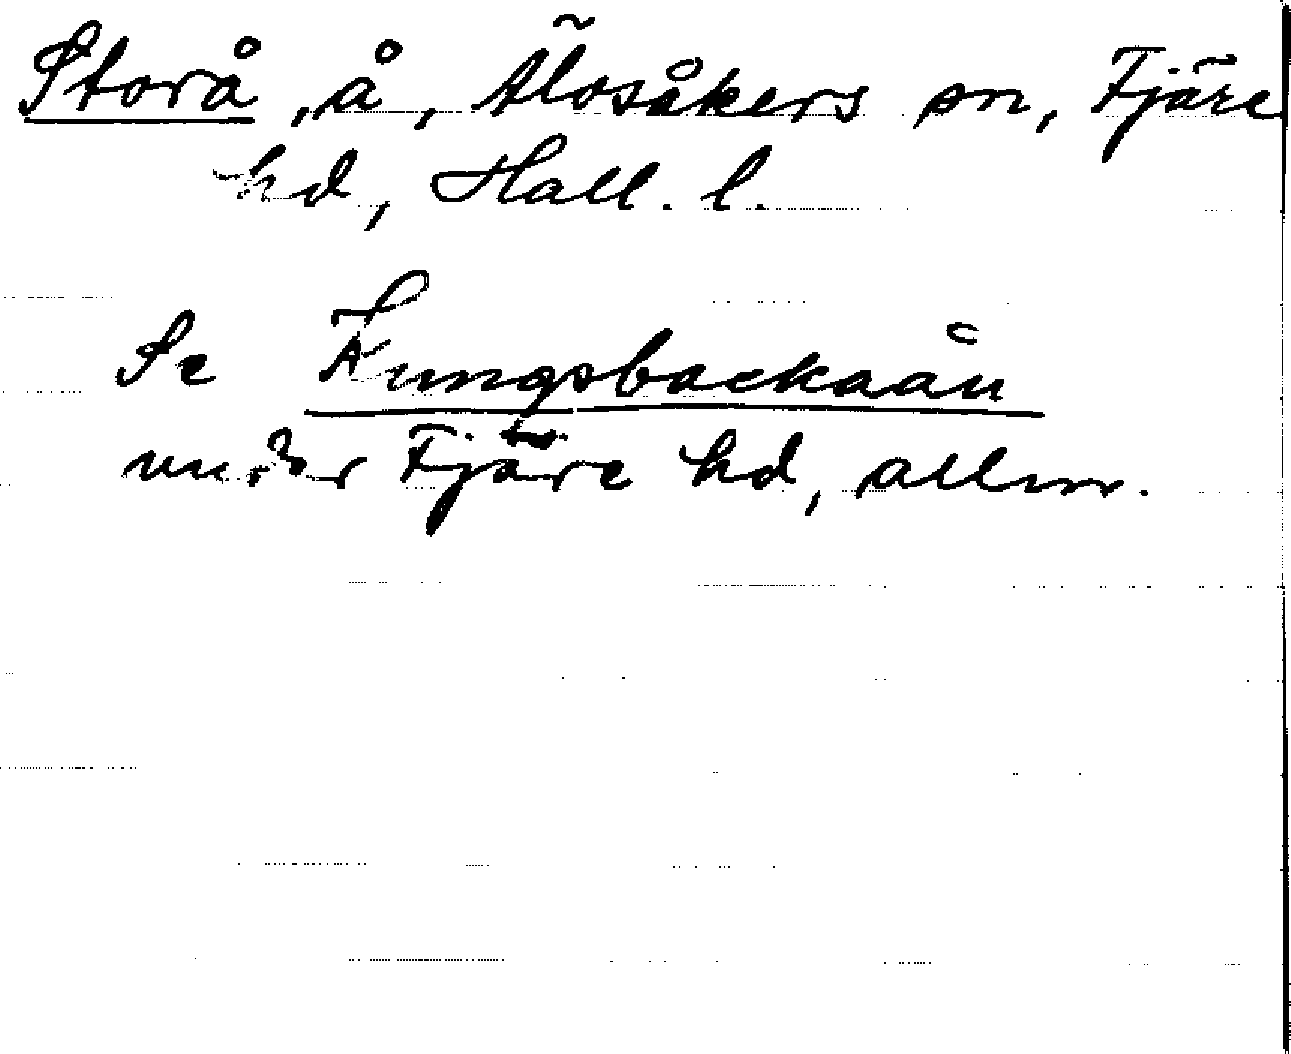 Storå, å, Älvsåkers sn, Fjäre
hd, Hall. l.
Se Kungsbackaån
under Fjäre hd, allm.